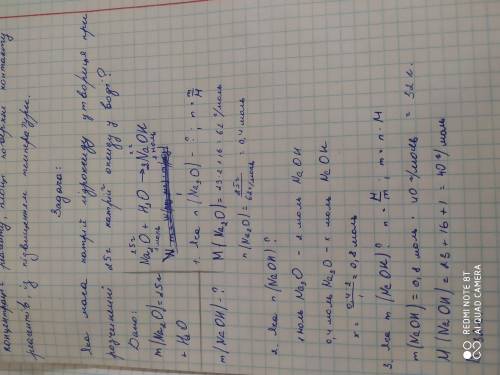 концентрації реагенту, площі поверхні контакту
реагентів, із підвищенням температури.
Задача:
Яка маса натрій гідроксиду утвориця при
розчиненні 25г натрій оксиду у воді?
Дано:
m(Na2O)=25г
+ H2O
m(NaOH)-?
25г x г
Na2O + H2O → 2NaOH
1 моль 2 моль
1. Яка n(Na2O)-? ; n = m/M
M(Na2O) = 23·2+16 = 62 г/моль
n(Na2O) = 25г / 62 г/моль = 0,4 моль
2. Яка n(NaOH)?
1 моль Na2O - 2 моль NaOH
0,4 моль Na2O - x моль NaOH
x = 0,4·2 / 1 = 0,8 моль
3. Яка m(NaOH)? n = M/m ; m = n·M
m(NaOH) = 0,8 моль · 40 г/моль = 32 г.
M(NaOH) = 23+16+1 = 40 г/моль
REDMI NOTE 8T
AI QUAD CAMERA